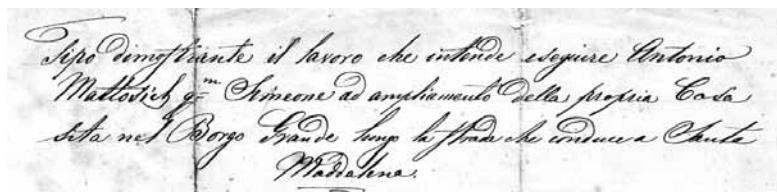 Tipo dimostrante il lavoro che intende eseguire Antonio
Mattovich q.m Simeone ad ampliamento della propria Casa
sita nel Borgo Grande lungo la strada che conduce a Santa
Maddalena.